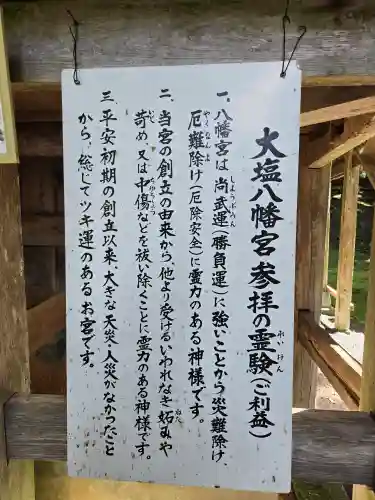 大塩八幡宮参拝の霊験(ご利益)
れいけん
一、八幡宮は尚武運(勝負運)に強いことから災難除け、
しようぶうん
厄難除け(厄除安全)に霊力のある神様です。
やくなんよ
二、当宮の創立の由来から、他より受けるいわれなき妬みや
ねた
苛め、又は中傷などを祓い除くことに霊力のある神様です。
いじ ちゅうしょう
三、平安初期の創立以来、大きな天災・人災がなかったこと
から、総じてツキ運のあるお宮です。